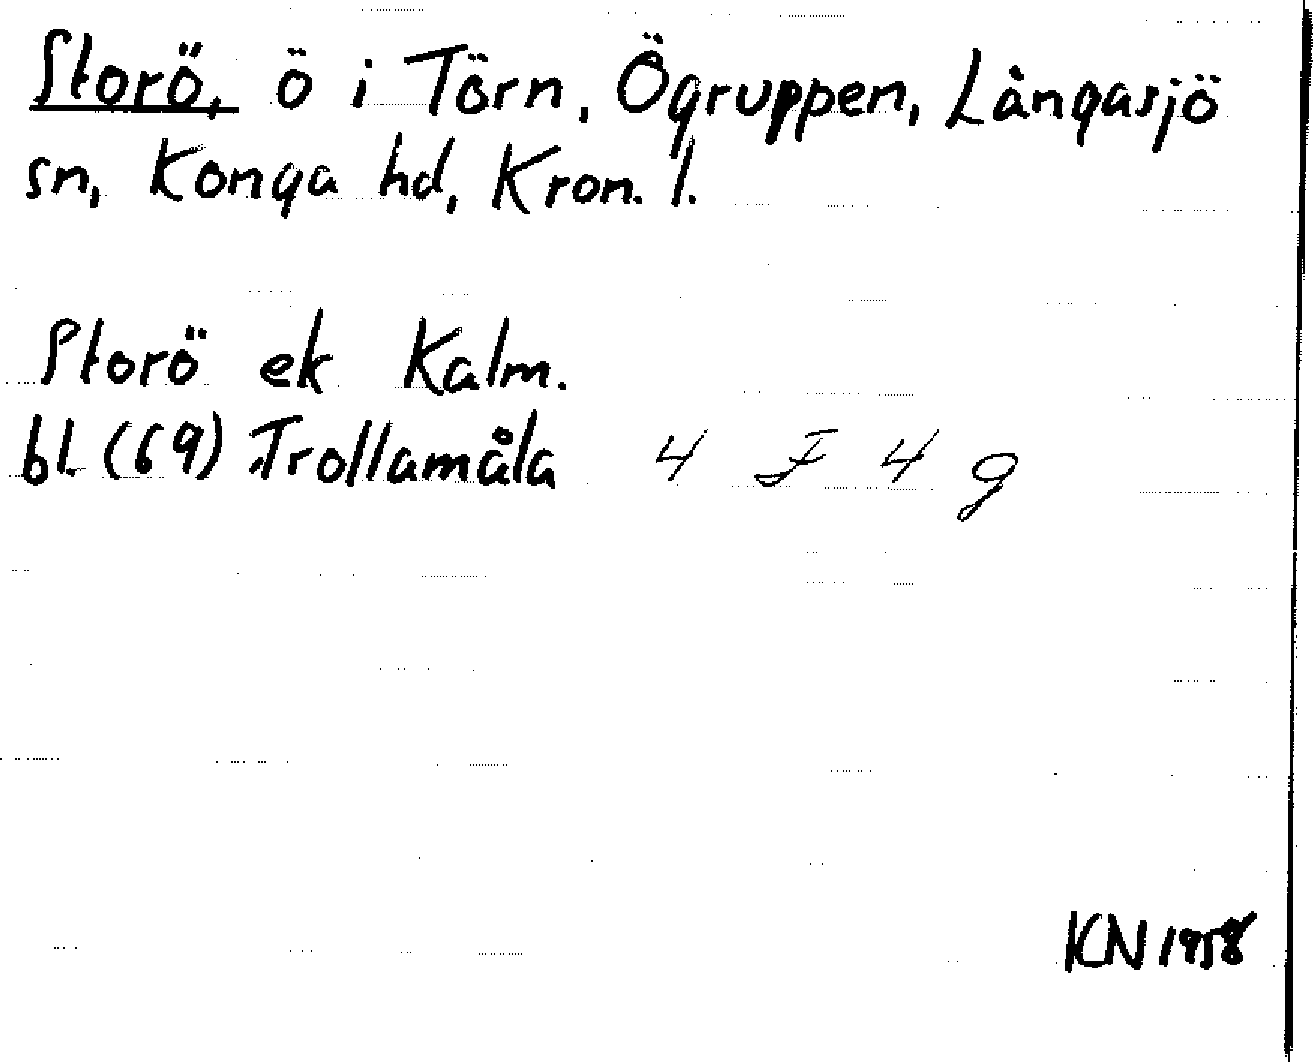 Storö, ö i Törn, Ögruppen, Långasjö
sn, Konga hd, Kron. l.
Storö ek Kalm.
bl. (69) Trollamåla 4 F 4 g
KN 1958